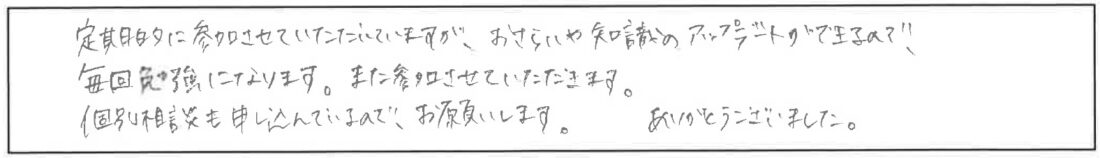 定期的に参加させていただいていますが、おさらいや知識のアップデートができるので、
毎回勉強になります。また参加させていただきます。
個別相談も申し込んでいるので、お願いします。 ありがとうございました。